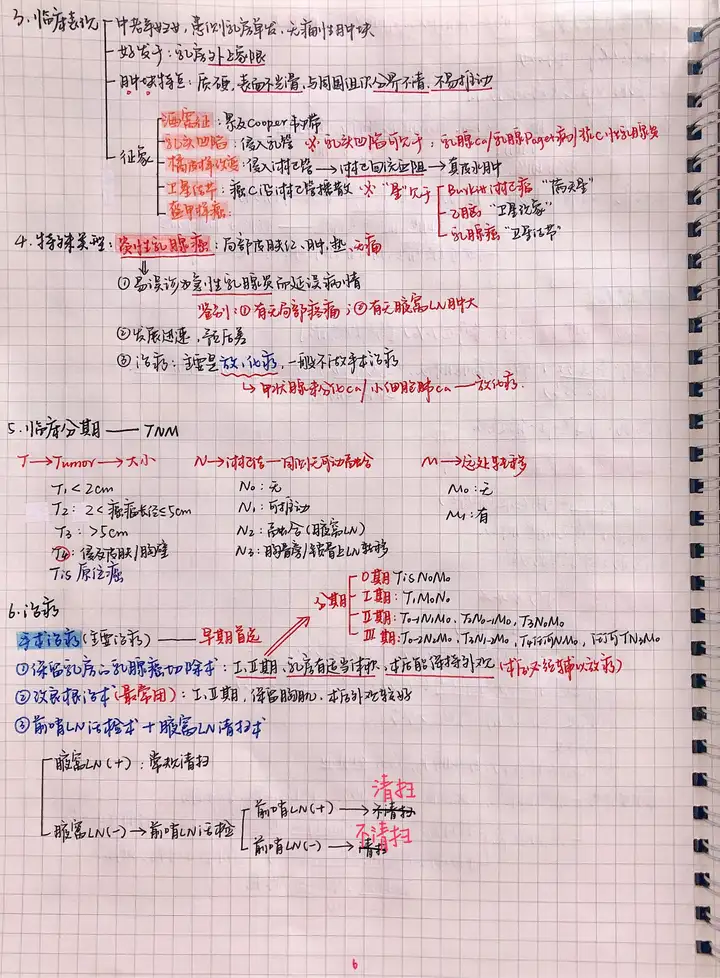 3. 临床表现
中老年妇女, 患侧乳房单发, 无痛性肿块
好发于: 乳房外上象限
肿块特点: 质硬, 表面不光滑, 与周围组织分界不清, 不易推动
征象
酒窝征: 累及Cooper韧带
乳头凹陷: 侵入乳管 ※乳头凹陷可见于: 乳腺Ca/乳腺Paget病/浆C性乳腺炎
橘皮样改变: 侵入淋巴管→淋巴回流受阻→真皮水肿
卫星结节: 癌C沿淋巴管播散 ※"星"见于
Burkitt淋巴瘤 "满天星"
乙脑 "卫星现象"
乳腺癌 "卫星结节"
铠甲样癌:
4. 特殊类型: 炎性乳腺癌: 局部皮肤红、肿、热、无痛
① 易误诊为急性乳腺炎而延误病情
鉴别: ①有无局部疼痛; ②有无腋窝LN肿大
② 发展迅速, 预后差
③ 治疗: 主要是放、化疗, 一般不做手术治疗
↳ 甲状腺未分化Ca/小细胞肺Ca — 放化疗.
5. 临床分期 —— TNM
T→Tumor→大小 N→淋巴结—同侧元可动融合 M→远处转移
T1<2cm N0: 无 M0: 无
T2: 2<癌瘤长径≤5cm N1: 可推动 M1: 有
T3: >5cm N2: 融合(腋窝LN)
T4: 侵及皮肤/胸壁 N3: 胸骨旁/锁骨上LN转移
Tis 原位癌
分期
0期 TisN0M0
I期: T1M0N0
II期: T0-1N1M0, T2N0-1M0, T3N0M0
III期: T0-2N2M0, T3N1-2M0, T4任何NM0, 任何TN3M0
6. 治疗
手术治疗(主要治疗) —— 早期首选
①保留乳房的乳腺癌切除术: I、II期, 乳房有适当体积, 术后能保持外观 (术后必须辅以放疗)
②改良根治术(最常用): I、II期, 保留胸肌, 术后外观较好
③前哨LN活检术+腋窝LN清扫术
腋窝LN(+): 常规清扫
清扫
腋窝LN(-)→前哨LN活检
前哨LN(+)→不清扫
不清扫
前哨LN(-)→清扫
6